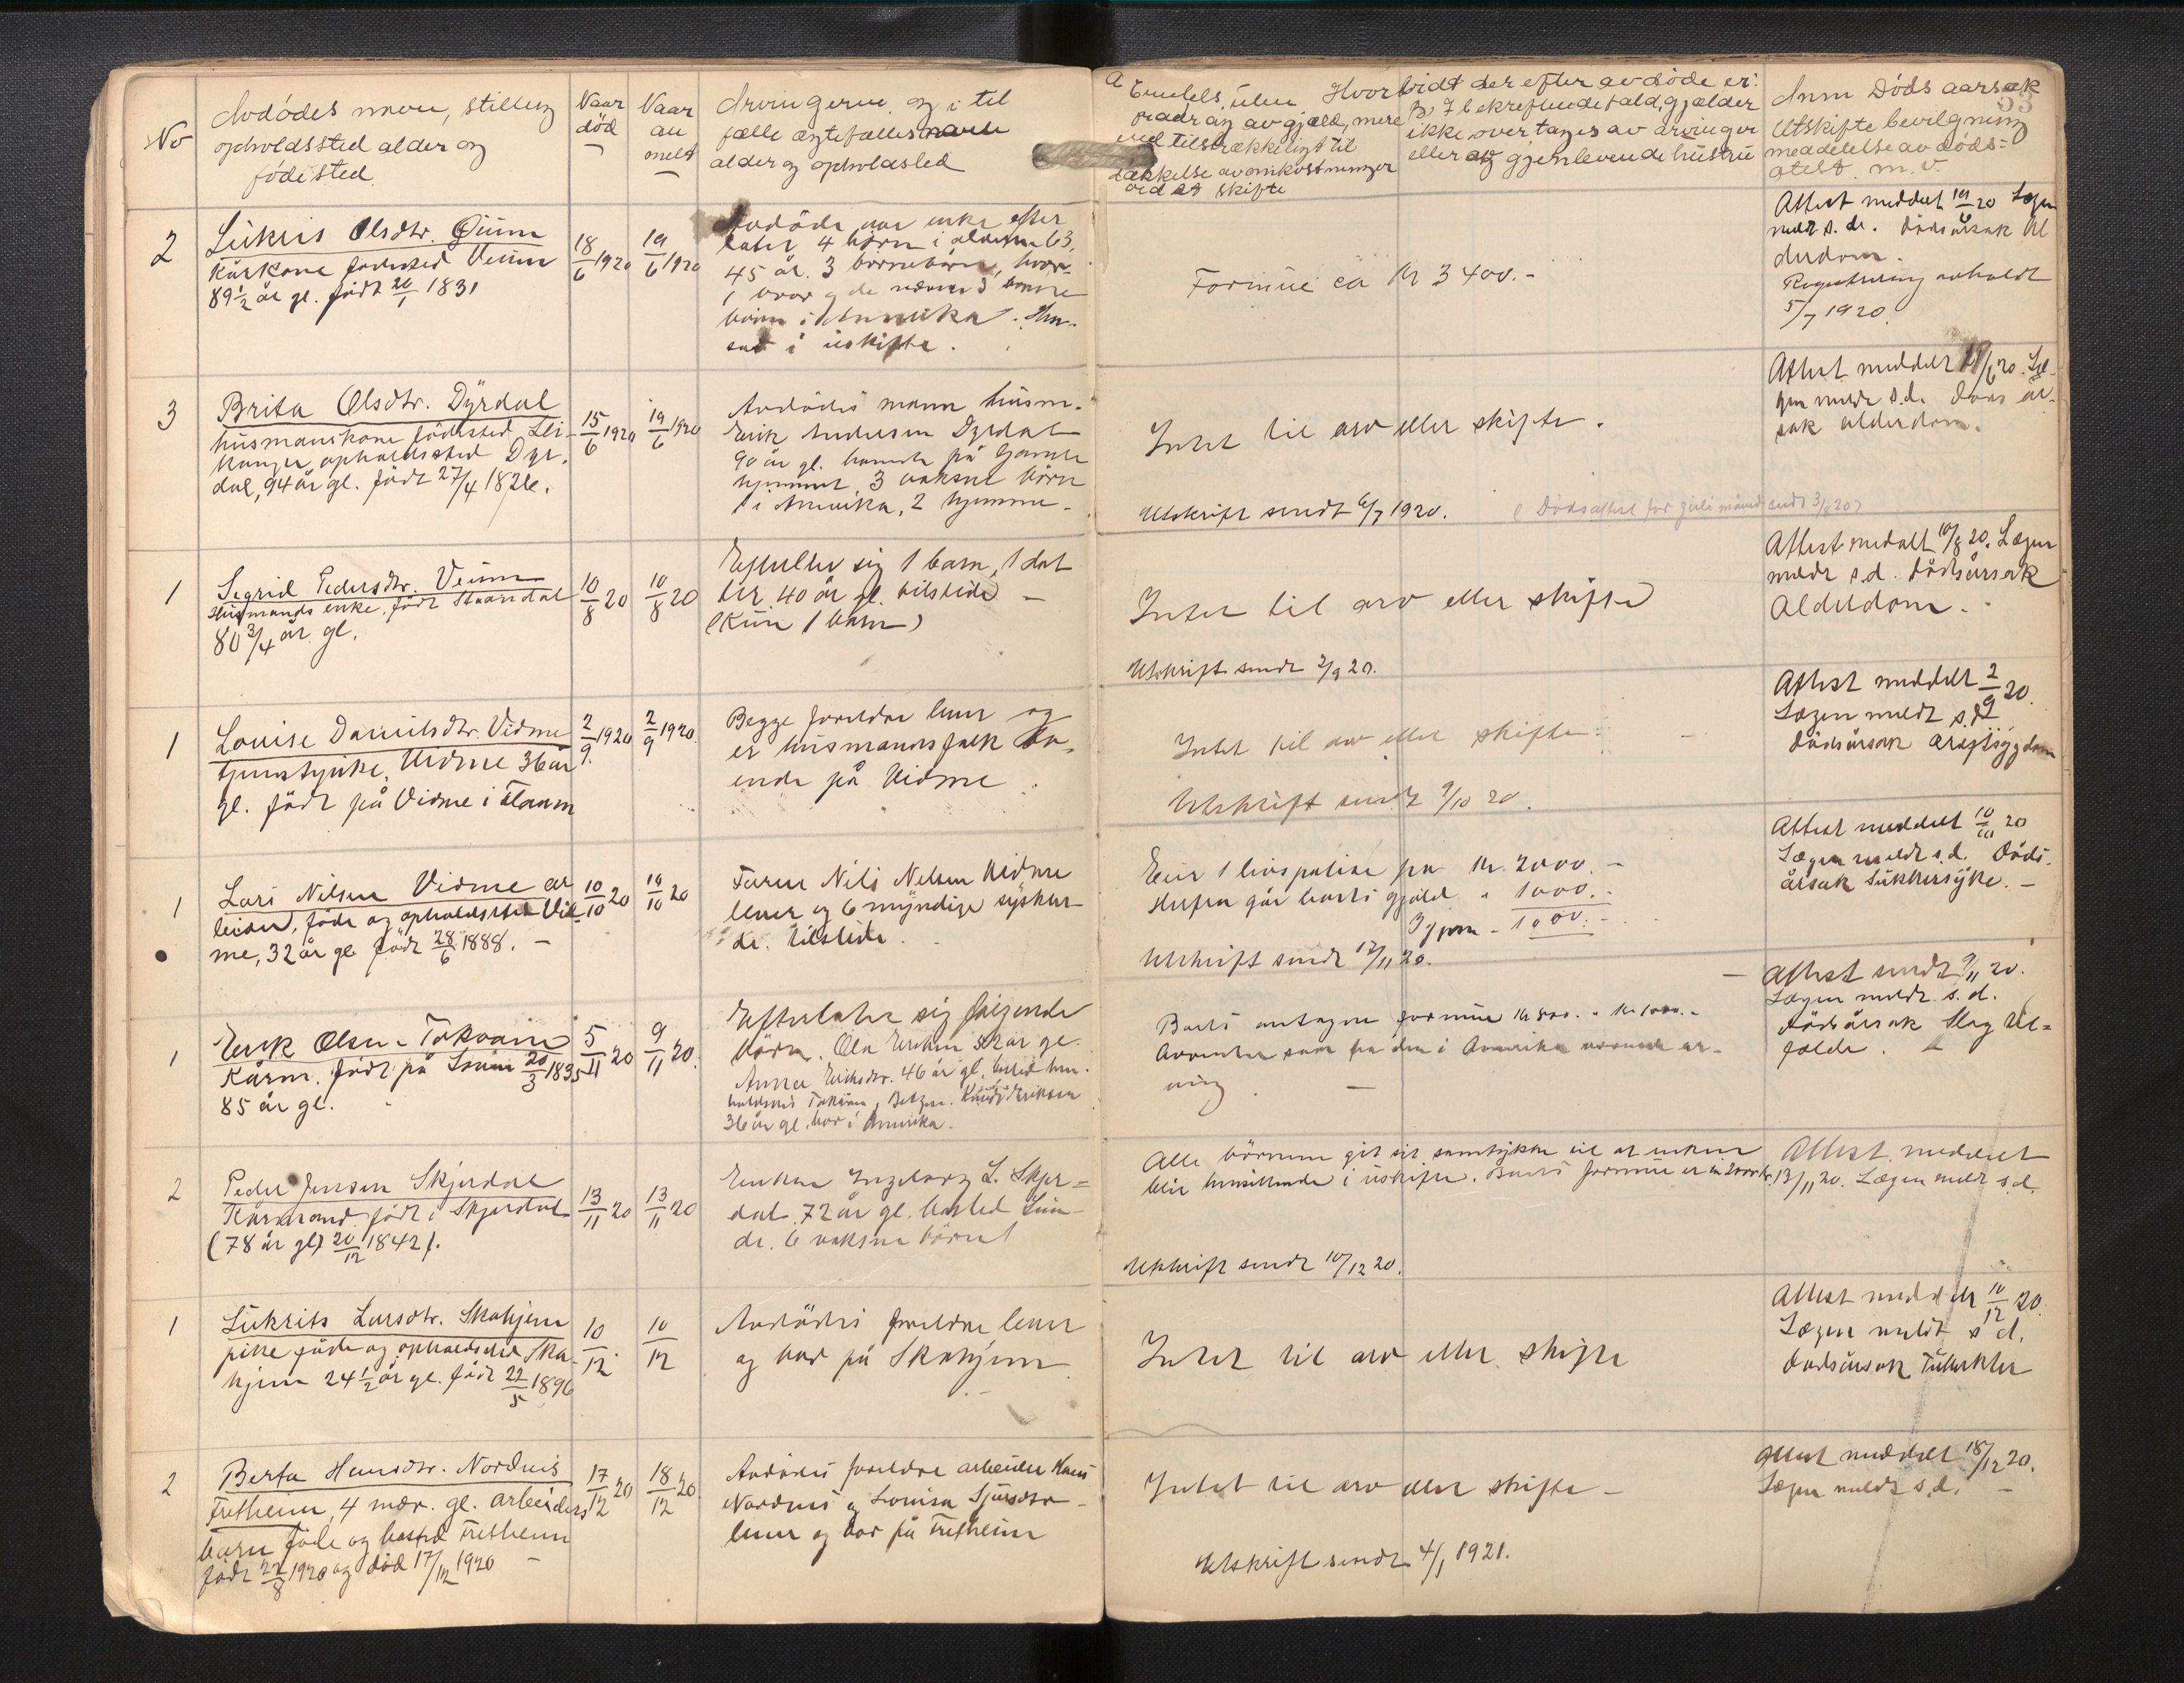 No
Avdödes navn, stilling
opholdssted alder og
födested.
Naar
död
Naar
an
meldt
Arvingerne og i til
fælle ægtefælles navn
alder og opholdsted
a
Hvorvidt der efter avdöde er:
av gjæld, mere
ved tilstrækkeligt til
dækkelse av omkostninger
ved et skifte
B, I bekreftende fald, gjælder
ikke overtages av arvinger
eller av gjenlevende hustru
Anm Döds aarsak
53
Utskifte bevilgning
meddelelse av döds-
atest. m. v.
2
Sukris Olsdtr.
Kårkone födested Veum
89 1/2 år gl. födt 20/1 1831
18/6 1920
19/6 1920
Avdöde var enke efter
later 4 börn i alderen 63,
45 år. 3 börnebörn, hvor
1 bror og de nævnte 3 börne
börn i Amerika. Hun
sad i uskifte.
Formue ca kr 3400.-
Attest meddelt 19/6 20 Lægen
meldt s. d. Dödsårsak Al
derdom.
Registrering avholdt
5/7 1920.
3
Brita Olsdtr. Dyrdal
husmanskone födested Lei-
kanger opholdssted Dyr-
dal, 94 år gl. födt 27/4 1826.
15/6 1920
19/6 1920
Avdödes mann husm.
Erik Andersen Dyrdal
90 år gl. boende på Gamle
hjemmet 3 voksne börn
1 i Amerika, 2 hjemme.
Intet til arv eller skifte.
Utskrift sendt 6/7 1920.
(Dödsattest for juli måned sendt 3/8 20)
Attest meddelt 19/6 20. Læ-
gen meldt s.d. Döds år-
sak alderdom.
1
Sigrid Pedersdtr. Veum
Husmands enke. födt Staandal
80 3/4 år gl.
10/8 20
10/8 20
Efterlater sig 1 barn, 1 dat
ter 40 år gl. tilstede –
(Kun 1 barn)
Intet til arv eller skifte
Utskrift sendt 2/9 20.
Attest medelt 10/8 20. Lægen
meldt s.d. Dödsårsak
Alderdom.
1
Louise Danielsdtr. Vidme
tjenestepike, Vidme 36 år
gl. födt på Vidme i Flaam
2/9 1920
2/9 1920.
Begge foreldre lever og
er husmandsfolk bo-
ende på Vidme.
Intet til arv eller skifte.
Utskrift sendt 9/10 20.
Attest meddelt 2/9 20.
Lægen meldt s.d.
Dödsårsak brystsygdom
1
Lars Nilsen Vidme ar
beider, föde og opholdssted Vid-
me, 32 år gl födt 28/6 1888. –
10/10 20
10/10 20
Faren Nils Nelsen Vidme
lever og 6 myndige sysken-
de. tilstede.
Eier 1 livspolise på kr. 2000.–
Herfra går bort i gjæld " 1000.–
Igjen – 1000.–
Utskrift sendt 12/11 20.
Attest meddelt 10/10 20
Lægen meldt s.d. Döds-
årsak Sukkersyke. –
1
Erik Olsen Tokvam
Kårm. födt på 20/3 1835
85 år gl.
5/11 20
9/11 20.
Efterlater sig fölgende
börn. Ola Eriksen år gl.
Anna Eriksdtr. 46 år gl, bosted
Tokvam, Knud Eriksen
36 år gl. bor i Amerika.
Boets antagne formue kr 800. – kr 1000.–
Avventer svar fra den i Amerika værende ar-
ving –
– Attest sendt 9/11 20.
Lægen meldt s.d.
Dödsårsak Slag til-
fælde. –
2
Peder Jensen Skjerdal
Kårmand födt i Skjerdal
(78 år gl) 20/12 1842).
13/11 20
13/11 20
Enken Ingeborg L. Skjer-
dal 72 år gl. bosted Sun-
de. 6 voksne börn
Alle börnene git sit samtykke til at enken
blir hensittende i uskifte. Boets formue er ca 2000 kr.
Utskrift sendt 10/12 20.
Attest meddelt
13/11 20. Lægen meldt s.d.
1
Sukrits Larsdtr. Skahjem
pike föde og opholdssted Ska-
hjem 24 1/2 år gl. födt 22/5 1896
10/12.
10/12
Avdödes foreldre lever
og bor på Skahjem
Intet til arv eller skifte
Attest meddelt 10/12 20.
Lægen meldt s d.
Dödsårsak Tuberkler
2
Berta Hansdtr. Nordnes
Fretheim, 4 mdr. gl. arbeiders
barn föde og bosted Fretheim
födt 22/8 1920 og död 17/12 1920 –
17/12 20
18/12 20
Avdödes foreldre arbeider Hans
Nordnes og Lovisa Sjursdtr
lever og bor på Fretheim
Intet til arv eller skifte –
Utskrift sendt 4/1 1921.
Attest meddelt 18/12 20.
Lægen meldt s.d. –